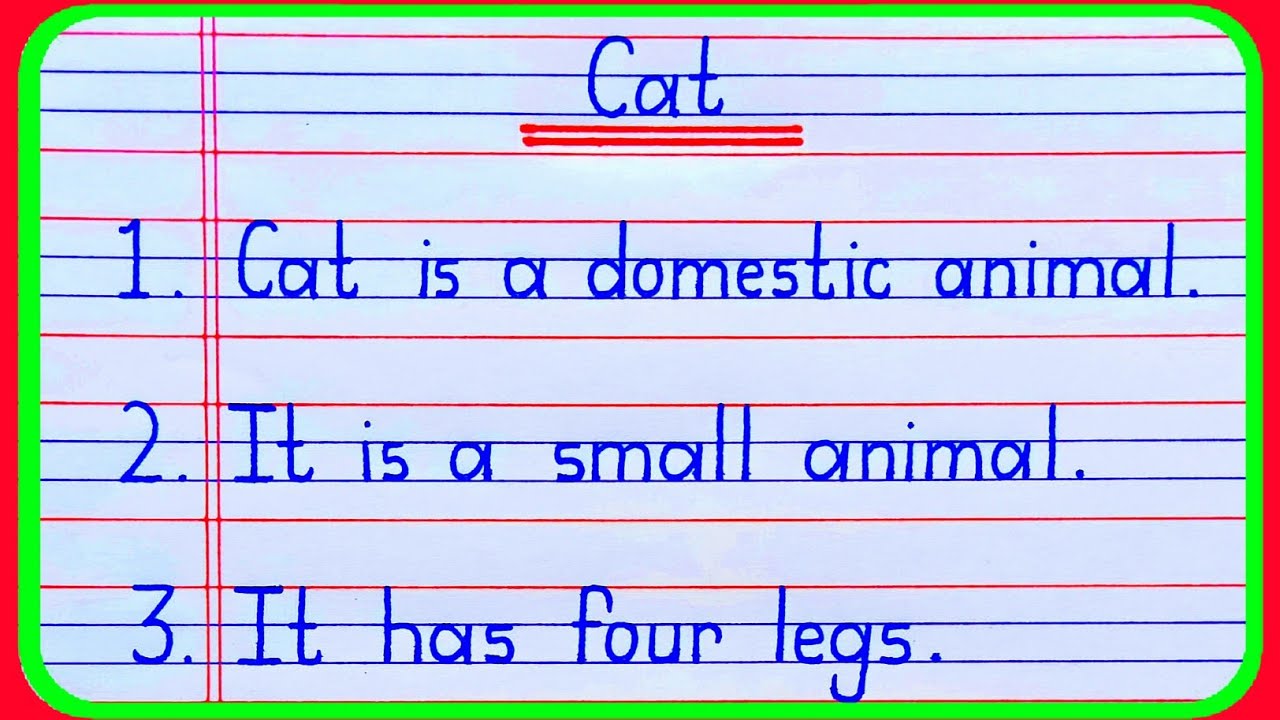 Cat
1. Cat is a domestic animal.
2. It is a small animal.
3. It has four legs.